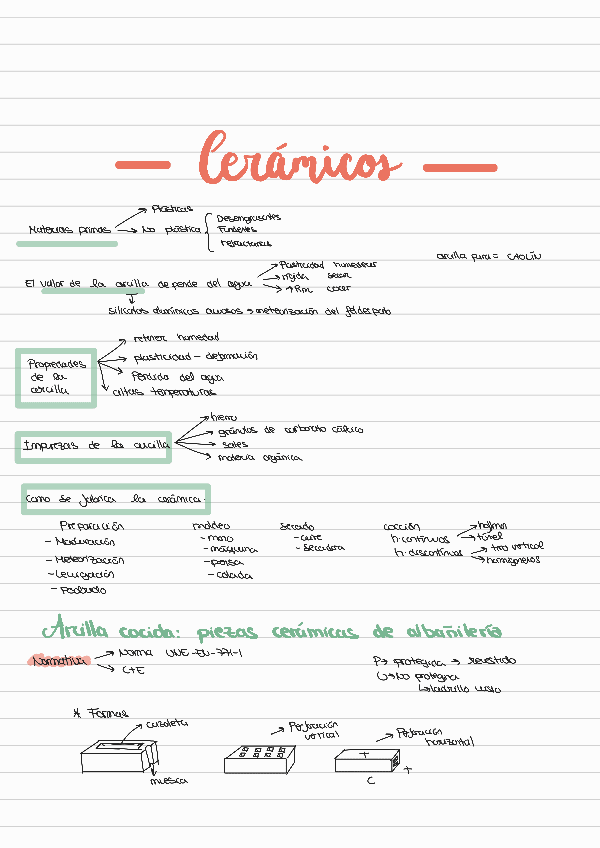 Cerámicos
Plásticas
Materias primas
No plástica
Desengrasantes
Fundentes
refractarias
arcilla pura = CAOLÍN
El valor de la arcilla depende del agua
Plasticidad humedecer
rigida secar
Rm cocer
silicatos alumínicos acuosos → meteorización del feldespato
Propiedades
de la
arcilla
retener humedad
plasticidad - deformación
Pérdida del agua
altas temperaturas
Impurezas de la arcilla
hierro
gránulos de carbonato cálcico
sales
materia orgánica
Como se fabrica la cerámica.
Preparación
- Maduración
- Meteorización
- Levigación
- Podrido
moldeo
- mano
- máquina
- prensa
- colada
secado
- aire
- secadora
cocción
h. continuos
hoffman
túnel
h. discontinuos
tiro vertical
hormigueros
Arcilla cocida: piezas cerámicas de albañilería
Normativa
Norma UNE-EN-771-1
CTE
P → protegida → revestido
U → No protegida
ladrillo visto
* Formas
cazoleta
muesca
Perforación
vertical
Perforación
horizontal
T
C
T